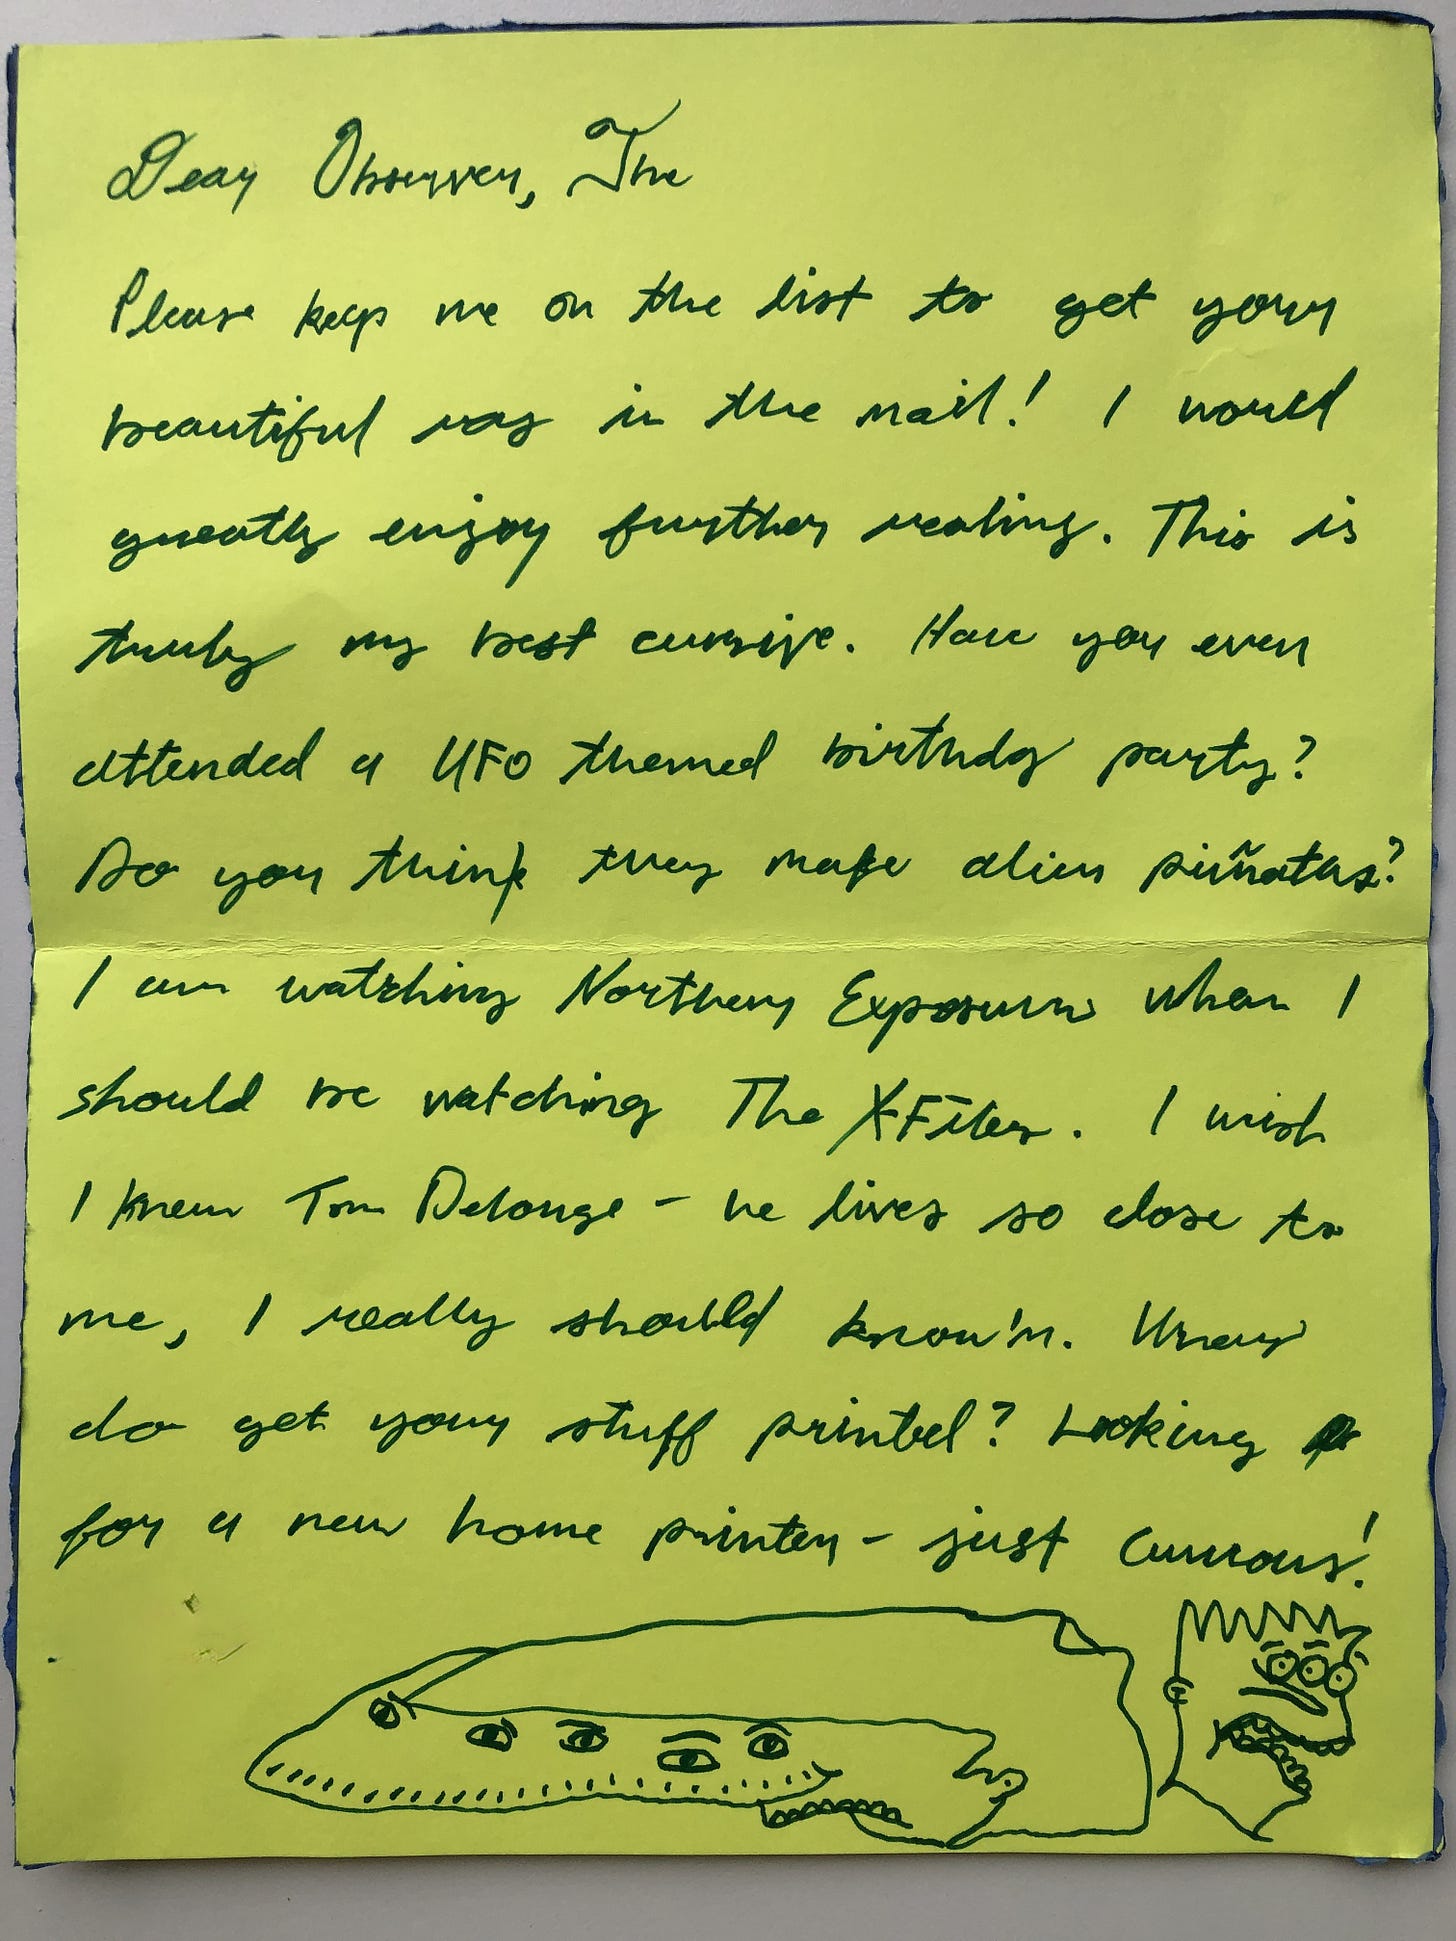 Dear Observer, The
Please keep me on the list to get your
beautiful rag in the mail! I would
greatly enjoy further reading. This is
truly my best cursive. Have you ever
attended a UFO themed birthday party?
Do you think they make alien piñatas?
I am watching Northern Exposure when I
should be watching The X-Files. I wish
I knew Tom Delonge - he lives so close to
me, I really should know'm. Where
do get your stuff printed? Looking
for a new home printer - just curious!